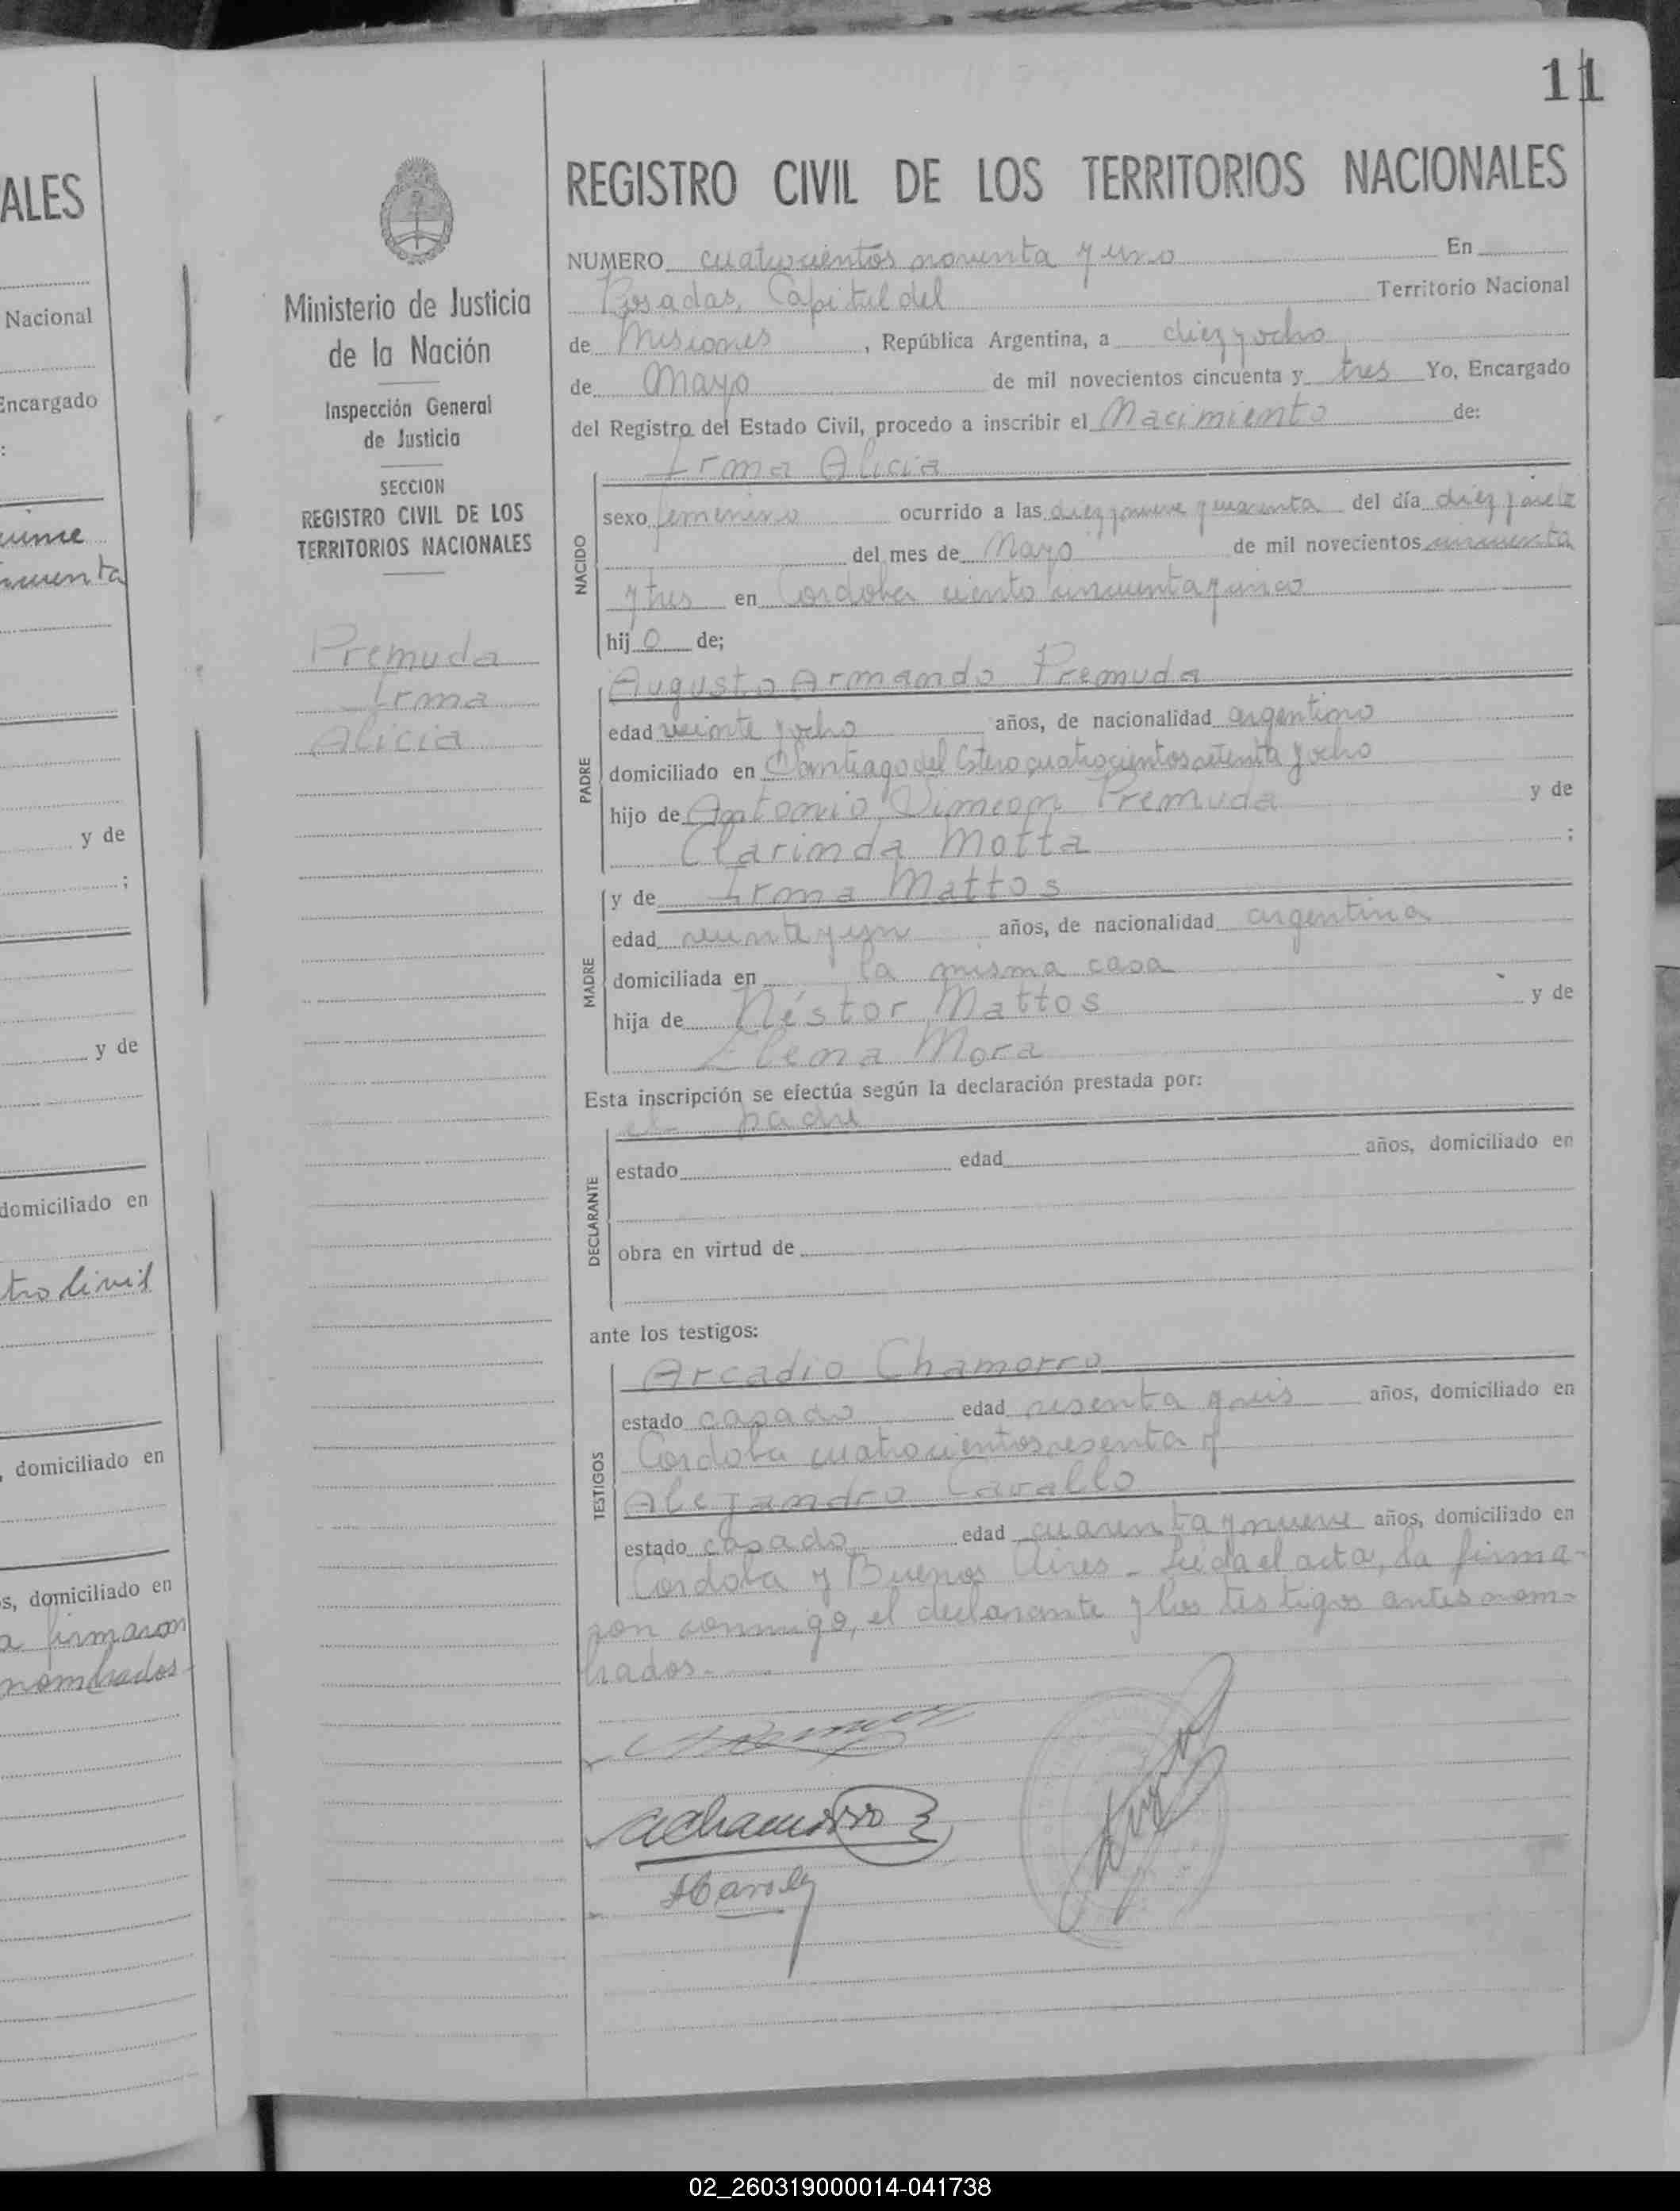 11
ALES
Nacional
Encargado
:
y de
;
y de
domiciliado en
domiciliado en
s, domiciliado en
a firmaron
nombrados.
Ministerio de Justicia
de la Nación
Inspección General
de Justicia
SECCION
REGISTRO CIVIL DE LOS
TERRITORIOS NACIONALES
Premuda
Irma
Alicia
REGISTRO CIVIL DE LOS TERRITORIOS NACIONALES
NUMERO cuatrocientos noventa y uno En
Posadas, Capital del Territorio Nacional
de Misiones, República Argentina, a diez y ocho
de Mayo de mil novecientos cincuenta y tres Yo, Encargado
del Registro del Estado Civil, procedo a inscribir el Nacimiento de:
Irma Alicia
NACIDO
sexo femenino ocurrido a las diez y nueve y cuarenta del día diez y siete
del mes de Mayo de mil novecientos cincuenta
y tres en Cordoba ciento cincuenta y cinco
hij o de;
PADRE
Augusto Armando Premuda
edad veinte y ocho años, de nacionalidad argentino
domiciliado en Santiago del Estero cuatrocientos setenta y ocho
hijo de Antonio Simeon Premuda y de
Clarinda Motta ;
MADRE
y de Irma Mattos
edad veinte y un años, de nacionalidad argentina
domiciliada en la misma casa
hija de Néstor Mattos y de
Elena Mora
Esta inscripción se efectúa según la declaración prestada por:
el padre
DECLARANTE
estado edad años, domiciliado en
obra en virtud de
ante los testigos:
TESTIGOS
Arcadio Chamorro
estado casado edad sesenta y seis años, domiciliado en
Cordoba cuatrocientos sesenta y
Alejandro Cavallo
estado casado edad cuarenta y nueve años, domiciliado en
Cordoba y Buenos Aires - Leída el acta, la firma-
ron conmigo, el declarante y los testigos antes nom-
brados.-
AChamorro
02_260319000014-041738